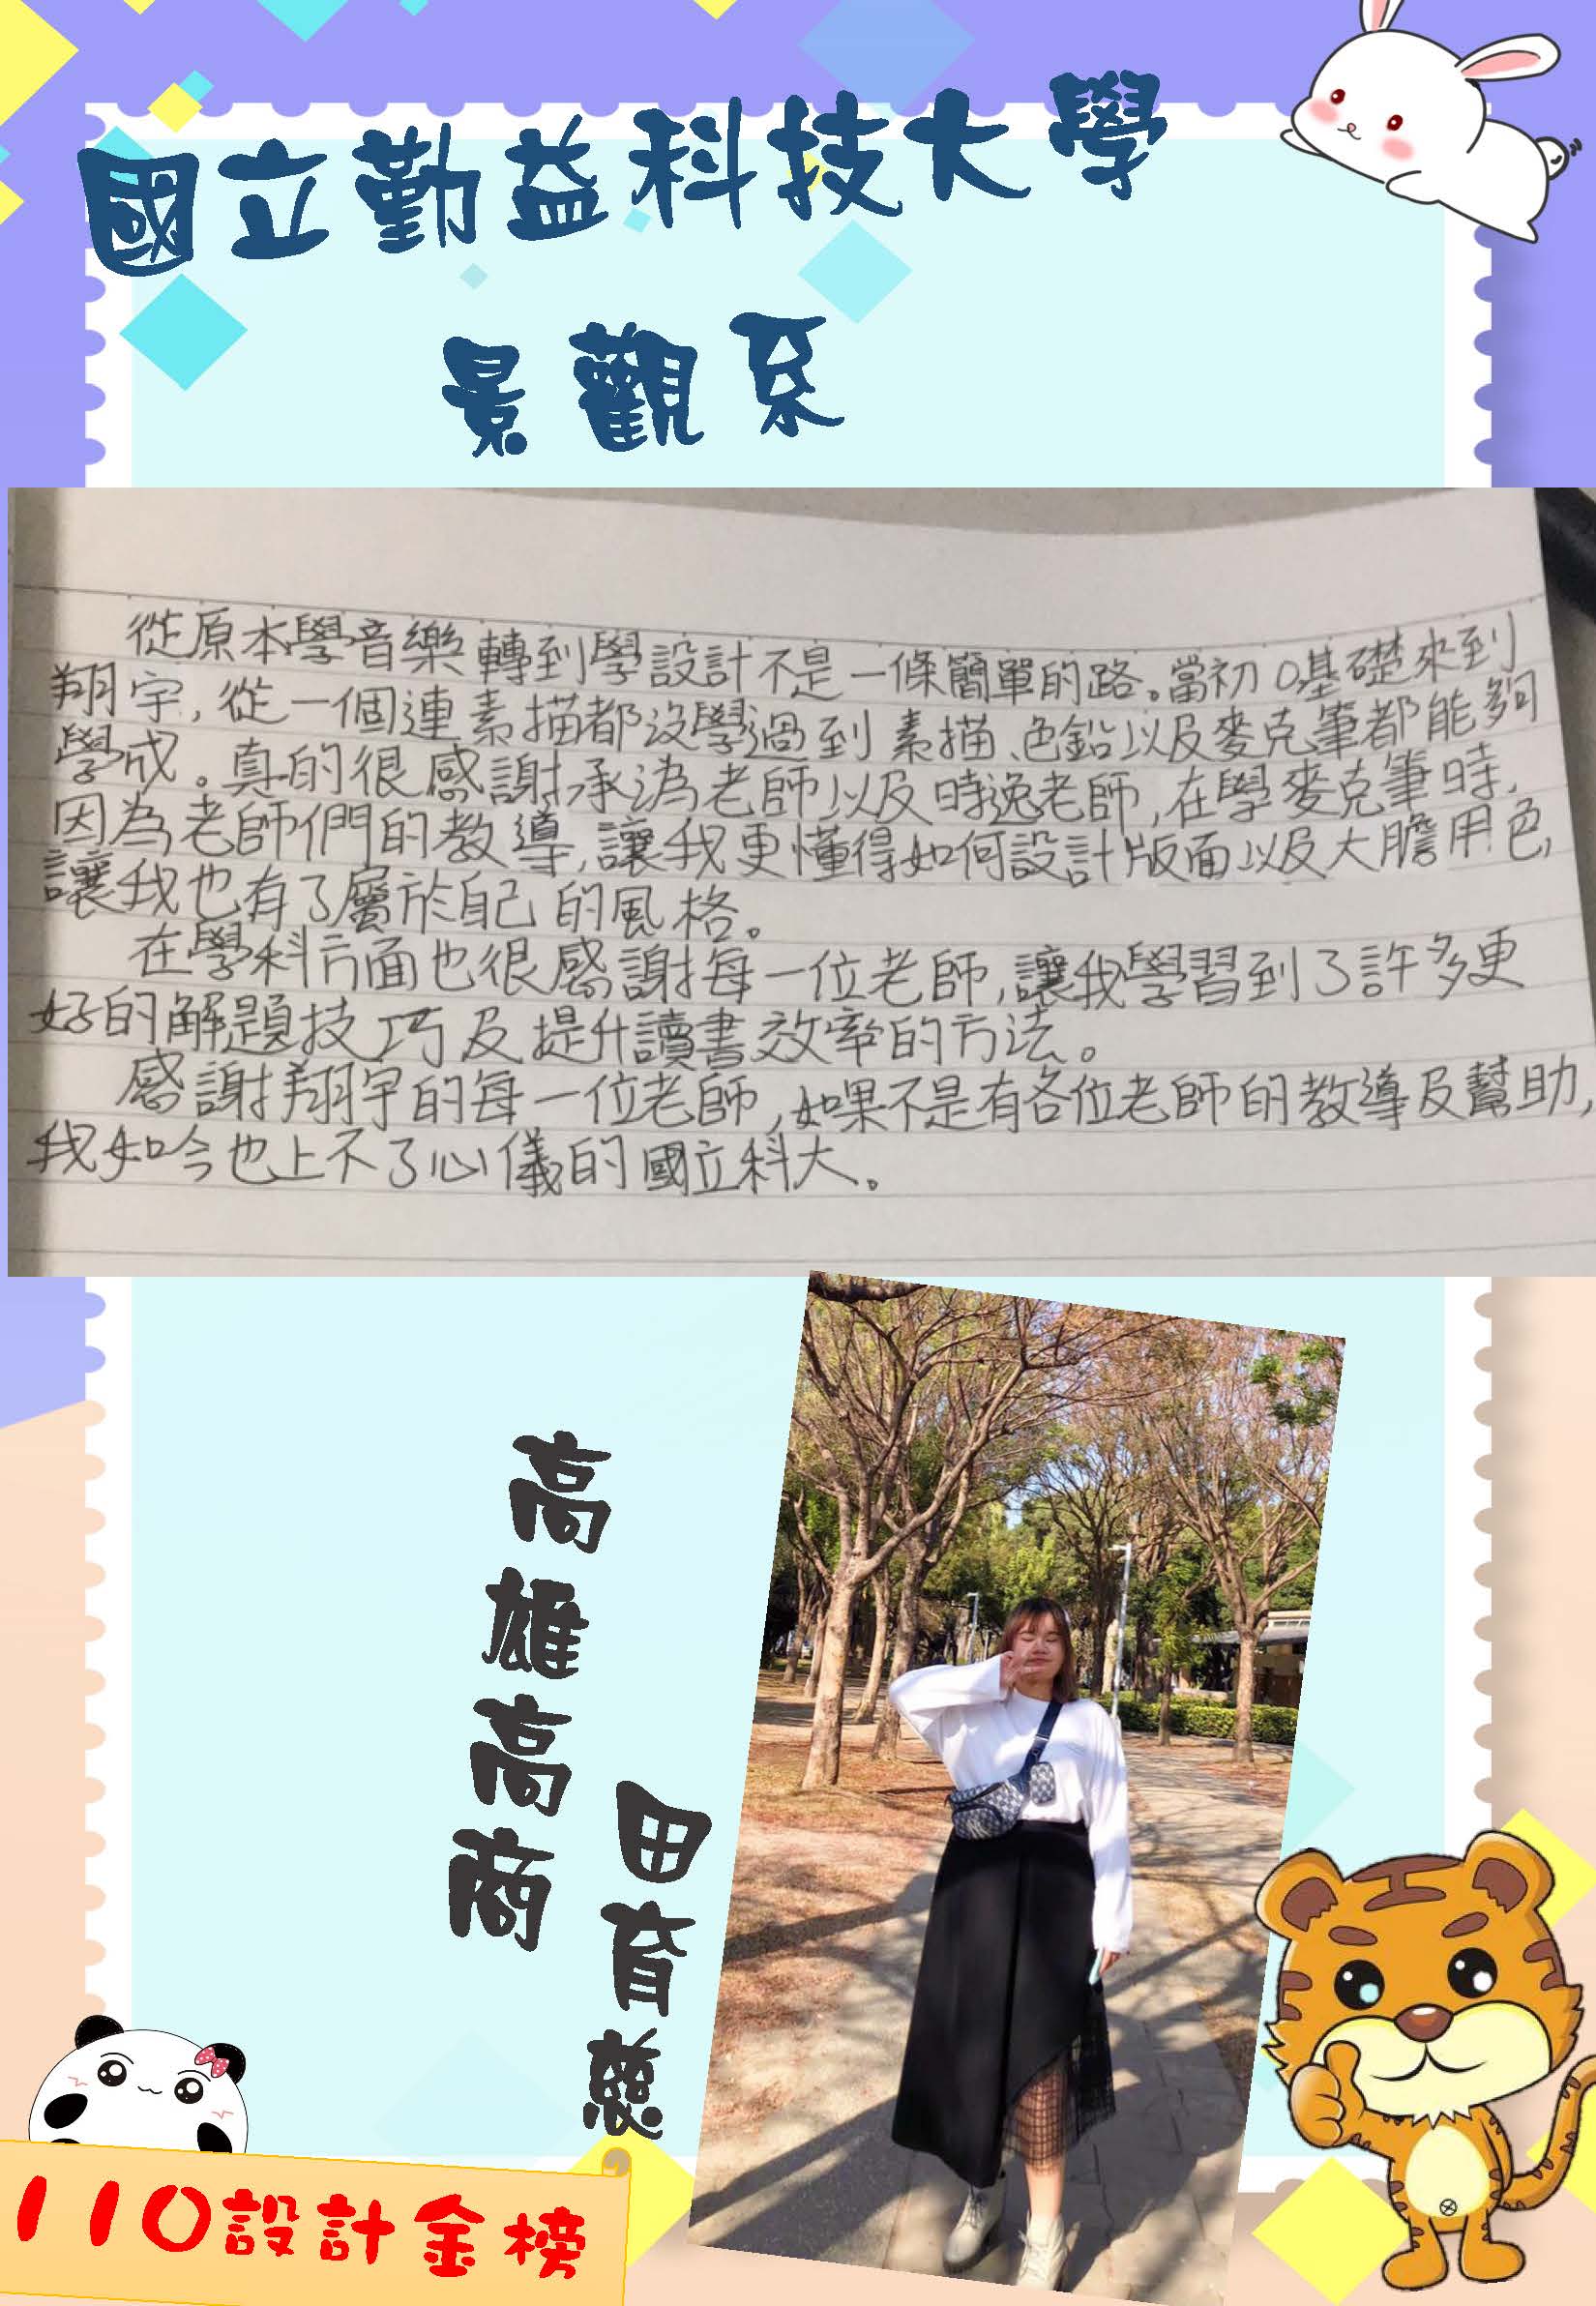 國立勤益科技大學
景觀系
從原本學音樂轉到學設計不是一條簡單的路。當初0基礎來到
翔宇,從一個連素描都沒學過到素描、色鉛以及麥克筆都能夠
學成。真的很感謝承溈老師以及時逸老師,在學麥克筆時,
因為老師們的教導,讓我更懂得如何設計版面以及大膽用色,
讓我也有了屬於自己的風格。
在學科方面也很感謝每一位老師,讓我學習到了許多更
好的解題技巧及提升讀書效率的方法。
感謝翔宇的每一位老師,如果不是有各位老師的教導及幫助,
我如今也上不了心儀的國立科大。
高雄高商
田育慈
110設計金榜